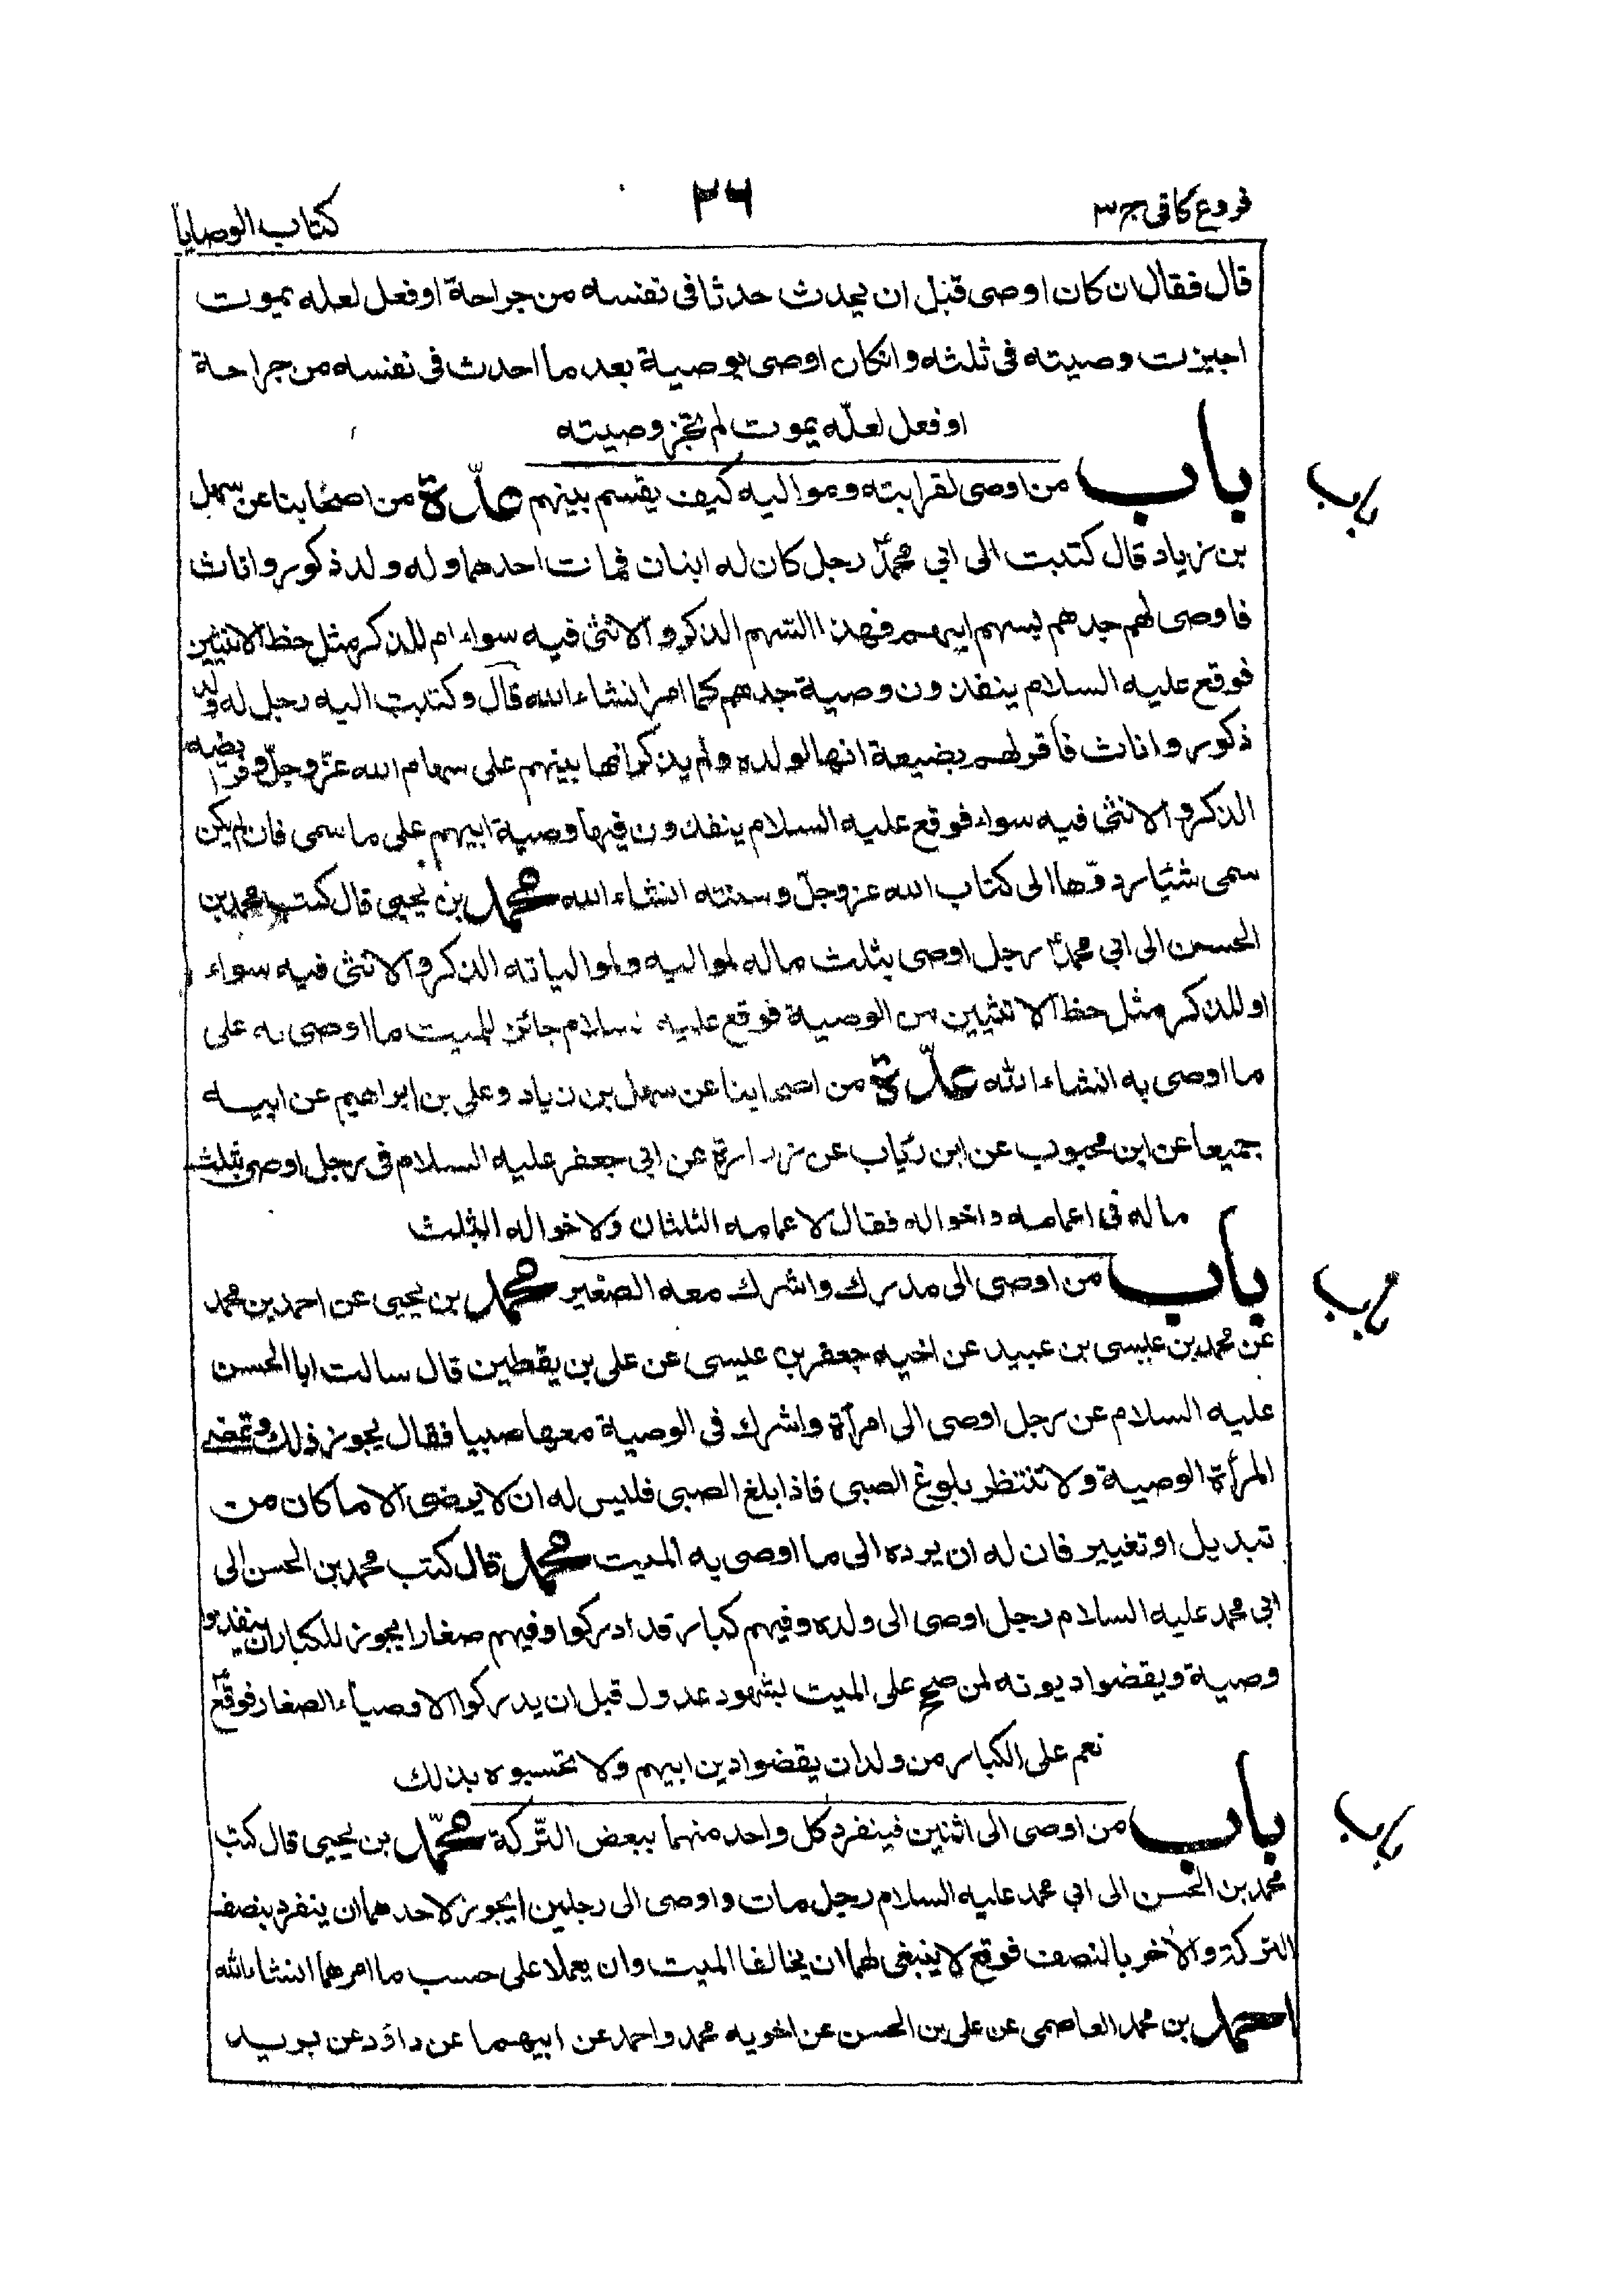 فروع كافى ج ٣
٢٦
كتاب الوصايا
قال فقال ان كان اوصى قبل ان يحدث حدثا فى نفسه من جراحة او فعل لعله يموت
اجيزت وصيته فى ثلثه وانكان اوصى بوصية بعد ما احدث فى نفسه من جراحة
او فعل لعلّه يموت لم تجز وصيته
باب من اوصى لقرابته ومواليه كيف يقسم بينهم علّة من اصحابنا عن سهل
باب
بن زياد قال كتبت الى ابي محمد رجل كان له ابنان فمات احدهما وله ولد ذكور واناث
فاوصى لهم جدهم بسهم ابيهم فهذا السّهم الذكر والانثى فيه سواء ام للذكر مثل حظ الانثيين
فوقع عليه السلام ينفذون وصية جدهم كما امر انشاءالله قال وكتبت اليه رجل له ولد
ذكور واناث فأقر لهم بضيعة انها لولده ولم يذكر انها بينهم على سهام الله عزّ وجلّ وفرايضه
الذكر والانثى فيه سواء فوقع عليه السلام ينفذون فيها وصية ابيهم على ما سمى فان لم يكن
سمى شيئا ردّوها الى كتاب الله عز وجلّ وسنته انشاءالله محمد بن يحيى قال كتب محمد بن
الحسن الى ابي محمد رجل اوصى بثلث ماله لمواليه ولموالياته الذكر والانثى فيه سواء
او للذكر مثل حظ الانثيين من الوصية فوقع عليه السلام جائز للميت ما اوصى به على
ما اوصى به انشاءالله علّة من اصحابنا عن سهل بن زياد وعلى بن ابراهيم عن ابيه
جميعا عن ابن محبوب عن ابن رئاب عن زرارة عن ابي جعفر عليه السلام فى رجل اوصى بثلث
ماله فى اعمامه واخواله فقال لاعمامه الثلثان ولاخواله الثلث
باب من اوصى الى مدرك واشرك معه الصغير محمد بن يحيى عن احمد بن محمد
باب
عن محمد بن عيسى بن عبيد عن اخيه جعفر بن عيسى عن على بن يقطين قال سالت ابا الحسن
عليه السلام عن رجل اوصى الى امرأة واشرك فى الوصية معها صبيا فقال يجوز ذلك وتمضى
المرأة الوصية ولا تنتظر بلوغ الصبى فاذا بلغ الصبى فليس له ان لا يرضى الا ما كان من
تبديل او تغيير فان له ان يرده الى ما اوصى به الميت محمد قال كتب محمد بن الحسن الى
ابي محمد عليه السلام رجل اوصى الى ولده وفيهم كبار قد ادركوا وفيهم صغار ايجوز للكبار ان ينفذوا
وصية ويقضوا ديونه لمن صح على الميت بشهود عدول قبل ان يدركوا الاوصياء الصغار فوقع
نعم على الكبار من ولدان يقضوا دين ابيهم ولا تحسبوه بذلك
باب من اوصى الى اثنين فينفرد كل واحد منهما ببعض التّركة محمّد بن يحيى قال كتب
باب
محمد بن الحسن الى ابي محمد عليه السلام رجل مات واوصى الى رجلين ايجوز لاحدهما ان ينفرد بنصف
التركة والآخر بالنصف فوقع لا ينبغى لهما ان يخالفا الميت وان يعملا على حسب ما امرهما انشاءالله
احمد بن محمد العاصمى عن على بن الحسن عن اخويه محمد واحمد عن ابيهما عن داود عن بريد